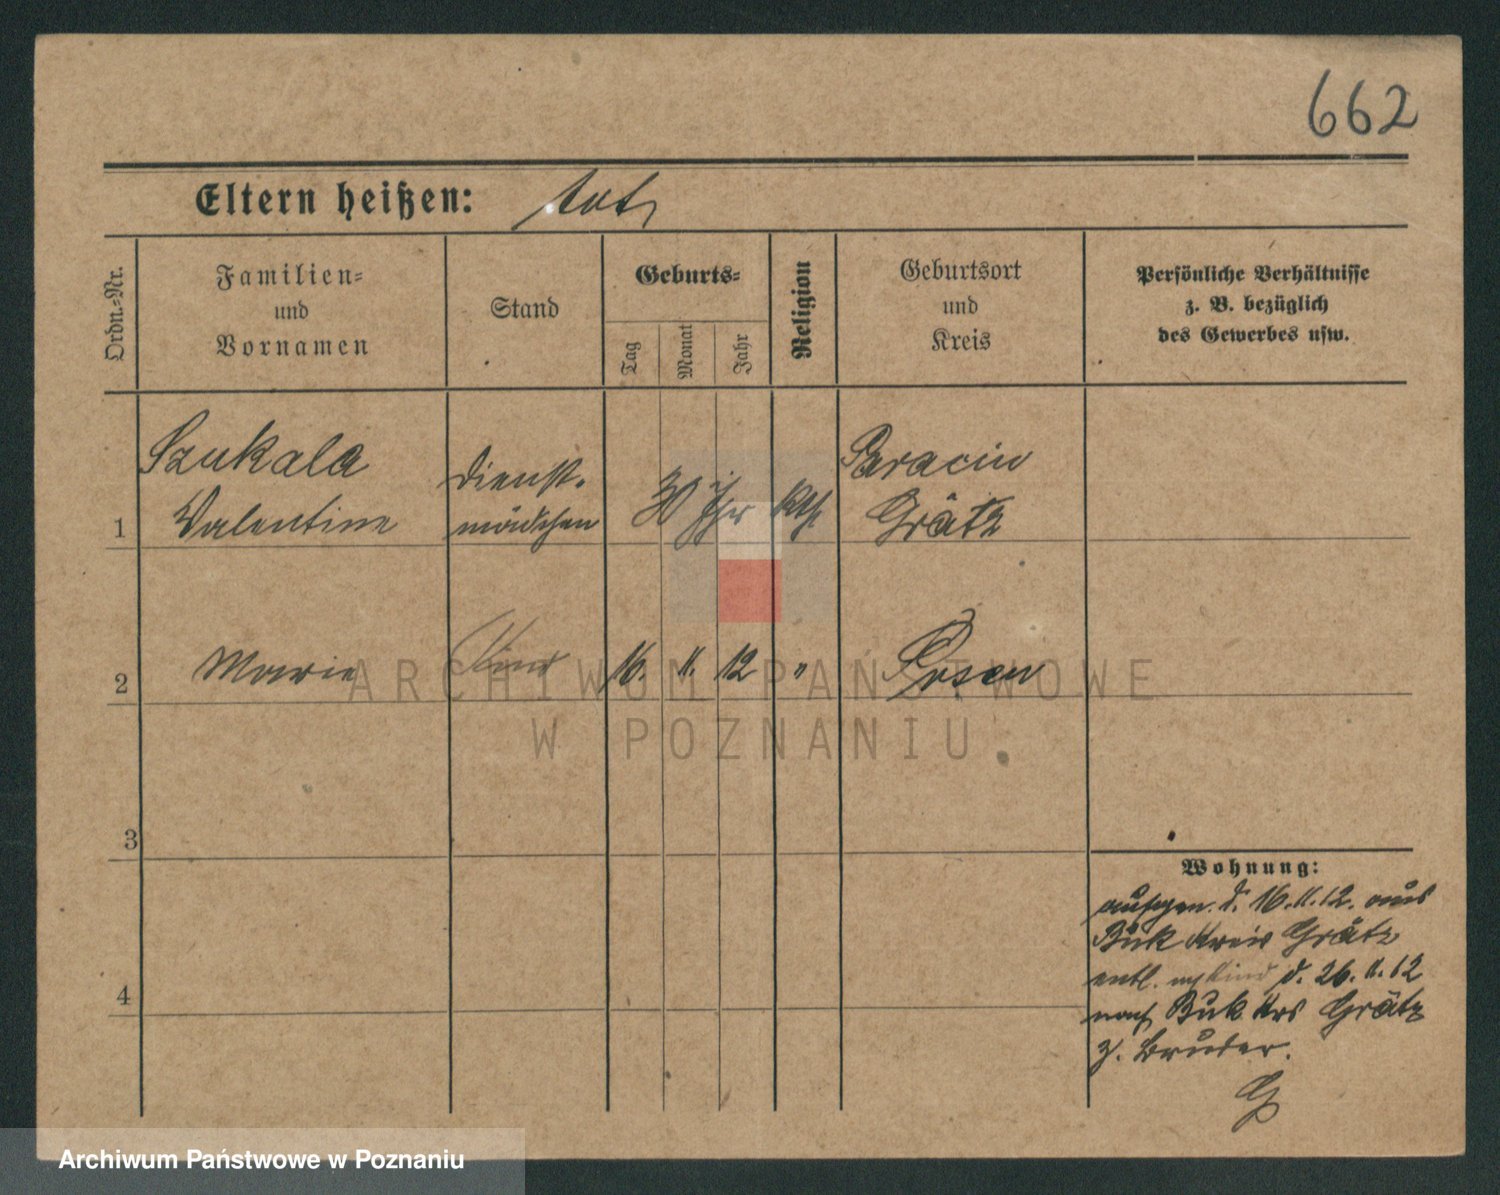 662
Eltern heißen: tot
Ordn.-Nr.
Familien-
und
Vornamen
Stand
Geburts-
Tag
Monat
Jahr
Religion
Geburtsort
und
Kreis
Persönliche Verhältnisse
z. B. bezüglich
des Gewerbes usw.
1
Szukala
Valentine
Dienst-
mädchen
30 Jhr
kth.
Paracin
Grätz
2
Marie
Kind
16.
11.
12
"
Posen
3
4
Wohnung:
aufgen. d. 16.11.12. aus
Buk Kreis Grätz
entl. m Kind d. 26.11.12
nach Buk Krs Grätz
z. Bruder.
ARCHIWUM PAŃSTWOWE
W POZNANIU
Archiwum Państwowe w Poznaniu